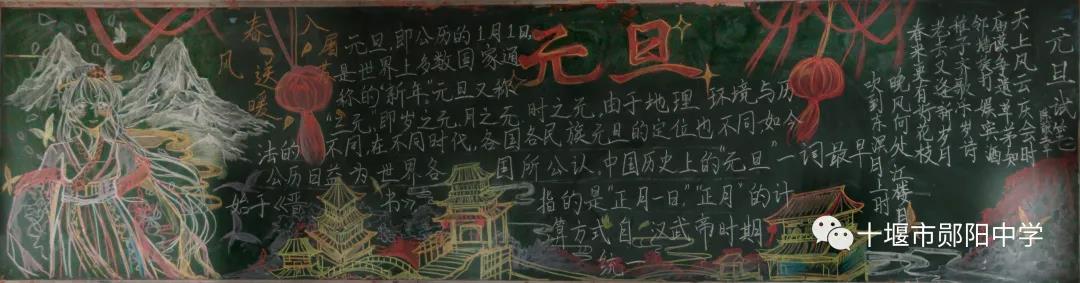 春风
送暖
入屠
元旦
元旦,即公历的1月1日,
是世界上多数国家通
称的“新年”。元旦又称
“三元”,即岁之元、月之元、时之元,由于地理环境与历
法的不同,在不同时代,各国各民族元旦的定位也不同,如今
公历日益为世界各国所公认。中国历史上的“元旦”一词最早
始于《晋书》
指的是“正月一日”“正月”的计
算方式自汉武帝时期
统一
元旦试笔
天上风云庆会时
庙谟争遣草茅知
邻墙旋打娱宾酒
稚子齐歌乐岁诗
老去又逢新岁月
春来更有好花枝
晚风何处江楼
火到东溟月上时
十堰市郧阳中学